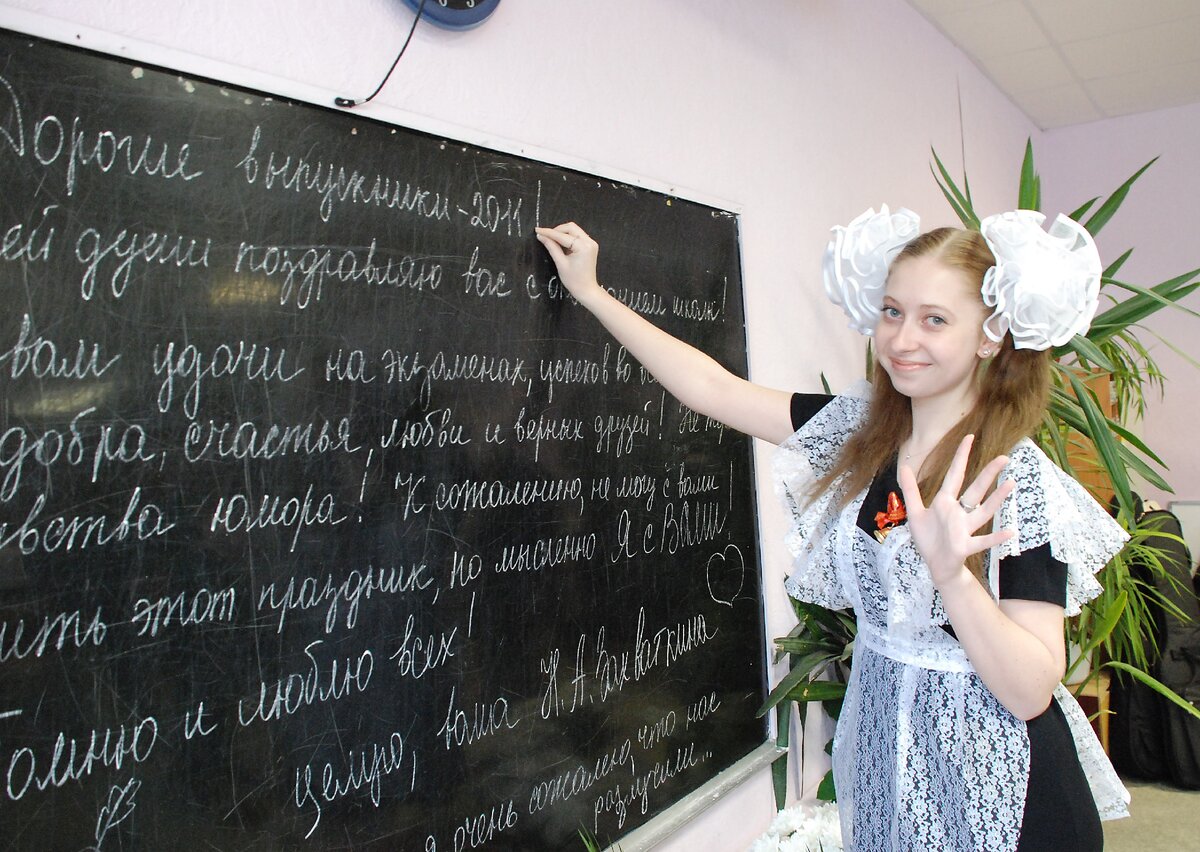 Дорогие выпускники-2011!
ей души поздравляю вас с окончанием школы!
вам удачи на экзаменах, успехов во
добра, счастья, любви и верных друзей! Не
чувства юмора! К сожалению, не могу с вами
ить этот праздник, но мысленно Я с ВАМИ!
Помню и люблю всех!
Целую, ваша Н.А. Захваткина
очень сожалею, что нас
разлучили...